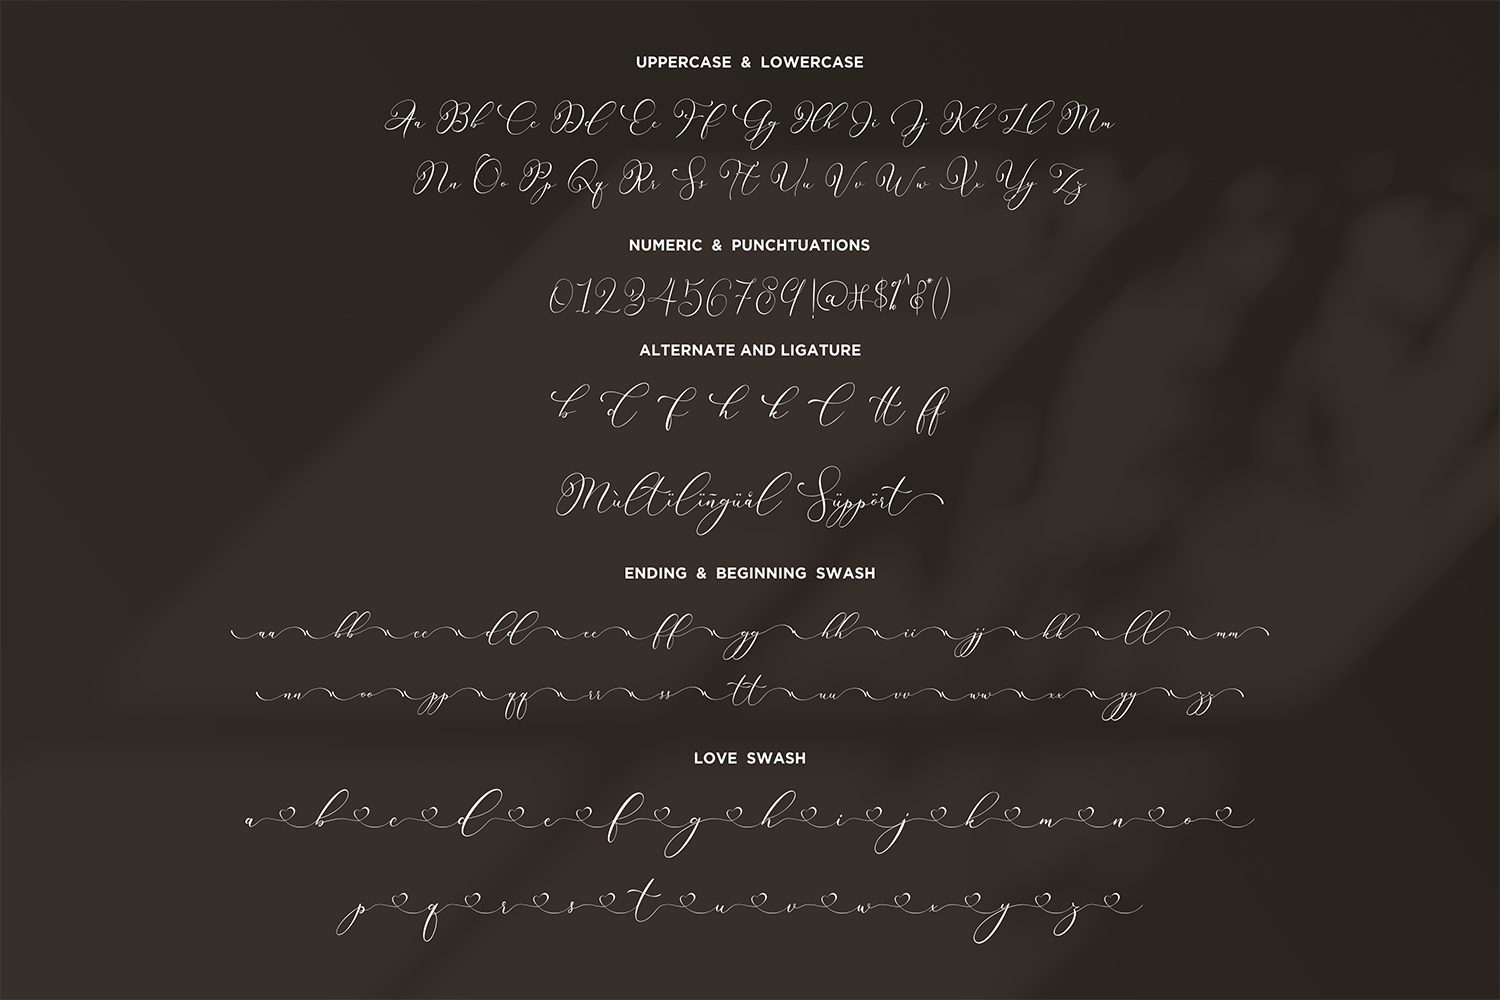 UPPERCASE & LOWERCASE
Aa Bb Cc Dd Ee Ff Gg Hh Ii Jj Kk Ll Mm
Nn Oo Pp Qq Rr Ss Tt Uu Vv Ww Xx Yy Zz
NUMERIC & PUNCHTUATIONS
0123456789!@#$%^&*()
ALTERNATE AND LIGATURE
b d f h k l tt ff
Mùltïlïñgüål Süppört
ENDING & BEGINNING SWASH
aa bb cc dd ee ff gg hh ii jj kk ll mm
nn oo pp qq rr ss tt uu vv ww xx yy zz
LOVE SWASH
a b c d e f g h i j k m n o
p q r s t u v w x y z